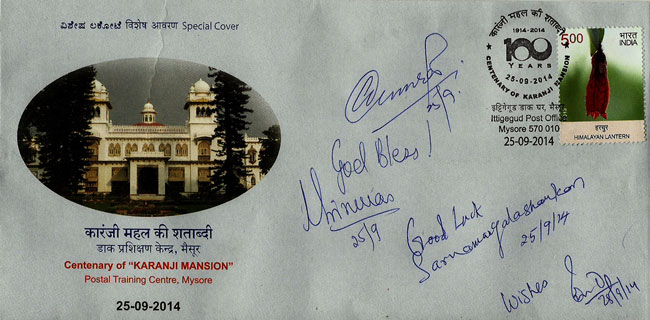 ವಿಶೇಷ ಲಕೋಟೆ विशेष आवरण Special Cover
कारंजी महल की शताब्दी
1914-2014
100
YEARS
CENTENARY OF KARANJI MANSION
25-09-2014
इट्टिगेगुड डाक घर, मैसूर
Ittigegud Post Office
Mysore 570 010
25-09-2014
5.00
भारत
INDIA
हरचुर
HIMALAYAN LANTERN
25/9.
God Bless!
Shrinivas
25/9
Good Luck
Sarvamangalashankar
25/9/14
Wishes
25/9/14
कारंजी महल की शताब्दी
डाक प्रशिक्षण केन्द्र, मैसूर
Centenary of "KARANJI MANSION"
Postal Training Centre, Mysore
25-09-2014